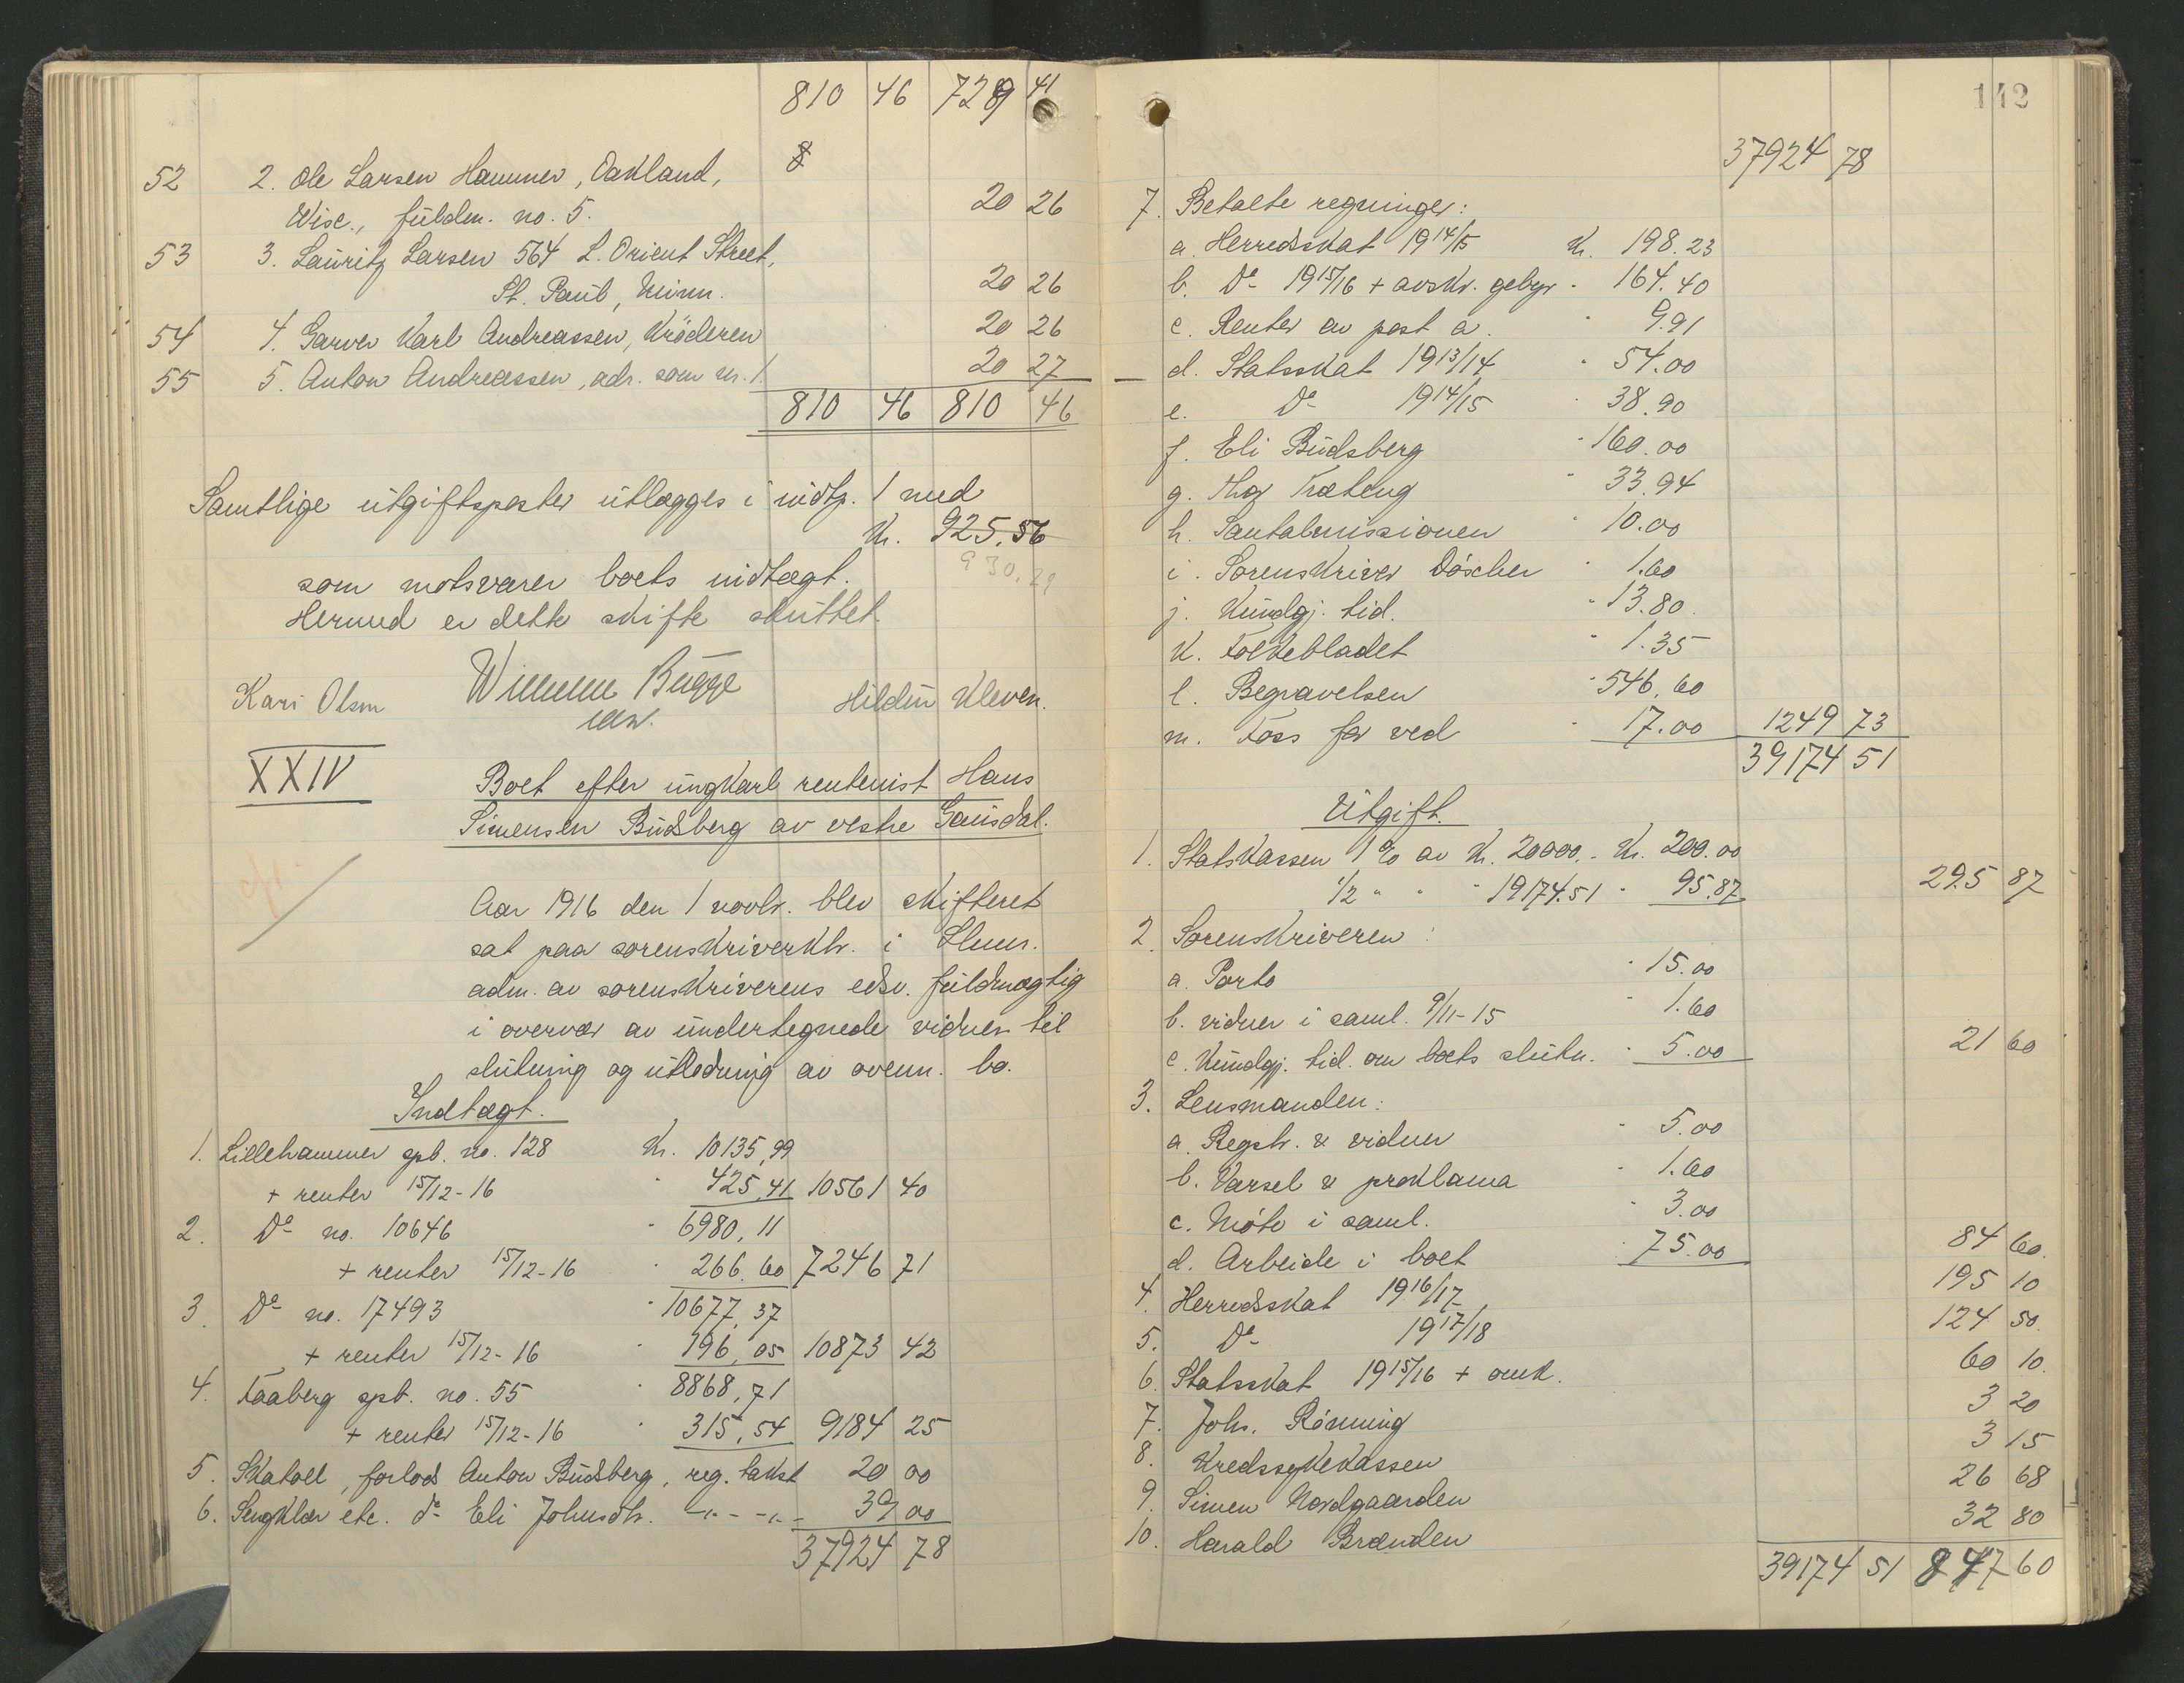 810 46 7289 41
8
52 2. Ole Larsen Hammer, Oakland,
Wisc., fuldm. no. 5. 20 26
53 3. Lauritz Larsen 564 L. Orient Street,
St. Paul, Minn. 20 26
54 4. Garver Karl Andreassen, Kröderen 20 26
55 5. Anton Andreassen, adr. som nr. 1. 20 27
810 46 810 46
Samtlige utgiftsposter utlægges i indtp. 1 med
Kr. 925.56
930.29
som motsvarer boets indtægt.
Hermed er dette skifte sluttet.
Kari Olsen Wilhelm Bugge Hildur Kleven.
edsv.
XXIV
Boet efter ungkarl rentenist Hans
Simensen Budsberg av vestre Gausdal.
Aar 1916 den 1 novbr. blev skifteret
sat paa sorenskriverktr. i Lhmr.
adm. av sorenskriverens edsv. fuldmægtig
i overvær av undertegnede vidner til
slutning og utlodning av ovenn. bo.
Indtægt.
1. Lillehammer spb. no. 128 Kr. 10135,99
+ renter 15/12-16 " 425,41 10561 40
2. Do no. 10646 " 6980,11
+ renter 15/12-16 " 266.60 7246 71
3. Do no. 17493 " 10677,37
+ renter 15/12-16 " 196,05 10873 42
4. Faaberg spb. no. 55 " 8868,71
+ renter 15/12-16 " 315,54 9184 25
5. Skatoll, forlods Anton Budsberg, reg. takst 20 00
6. Sengklær etc. do Eli Johnsdtr. -"- -"- 39 00
37924 78
142
37924 78
7. Betalte regninger:
a. Herredskat 1914/15 Kr. 198.23
b. Do 1915/16 + avskr. gebyr " 164.40
c. Renter av post a. " 9.91
d. Statsskat 1913/14 " 54.00
e. Do 1914/15 " 38.90
f. Eli Budsberg " 160.00
g. Thor Træteng " 33.94
h. Santalmissionen " 10.00
i. Sorenskriver Döscher " 1.60
j. Kundgj. tid. " 13.80.
k. Folkebladet " 1.35
l. Begravelsen " 546.60
m. Foss for ved " 17.00 1249 73
39174 51
Utgift.
1. Statskassen 1 % av Kr. 20000.- Kr. 200.00
1/2 " " " 19174.51 " 95.87 295 87
2. Sorenskriveren:
a. Porto " 15.00
b. vidner i saml. 9/11-15 " 1.60
c. Kundgj. tid. om boets slutn. " 5.00 21 60
3. Lensmanden:
a. Regstr. & vidner " 5.00
b. Varsel & proklama " 1.60
c. Möte i saml. " 3.00
d. Arbeide i boet " 75.00 84 60.
4. Herredsskat 1916/17 195 10
5. Do 1917/18 124 50.
6. Statsskat 1915/16 + omk. 60 10.
7. Johs. Rönning 3 20
8. Kredssykekassen 3 15
9. Simen Nordgaarden 26 68
10. Harald Brænden 32 80
39174 51 847 60